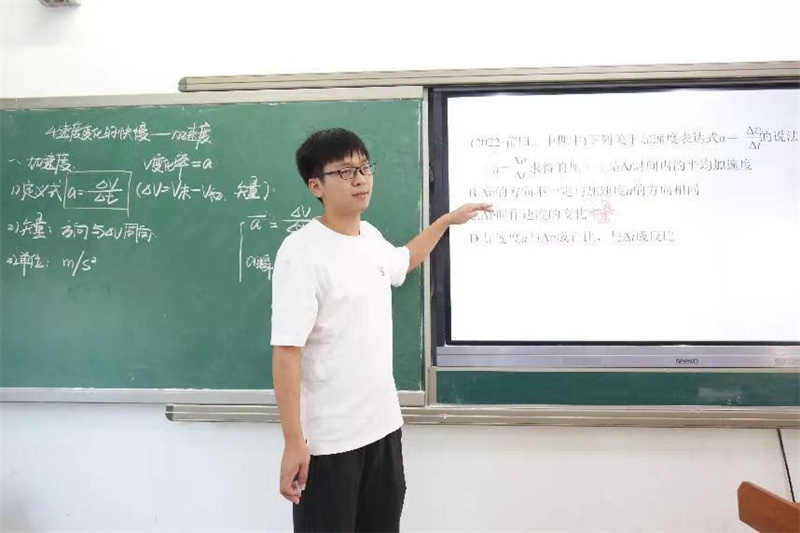 4.速度变化的快慢——加速度
一、加速度 v变化率=a
1)定义式 a=Δv/Δt (Δv=v末-v初, 矢量)
2)矢量: 方向与Δv同向
3)单位: m/s²
a̅=Δv/Δt
a瞬
(2022·莆田 期中)下列关于加速度表达式a=Δv/Δt的说法
a=Δv/Δt求得的加速度是Δt时间内的平均加速度
B.Δv的方向不一定与加速度a的方向相同
C.Δv叫作速度的变化率
D.加速度a与Δv成正比，与Δt成反比